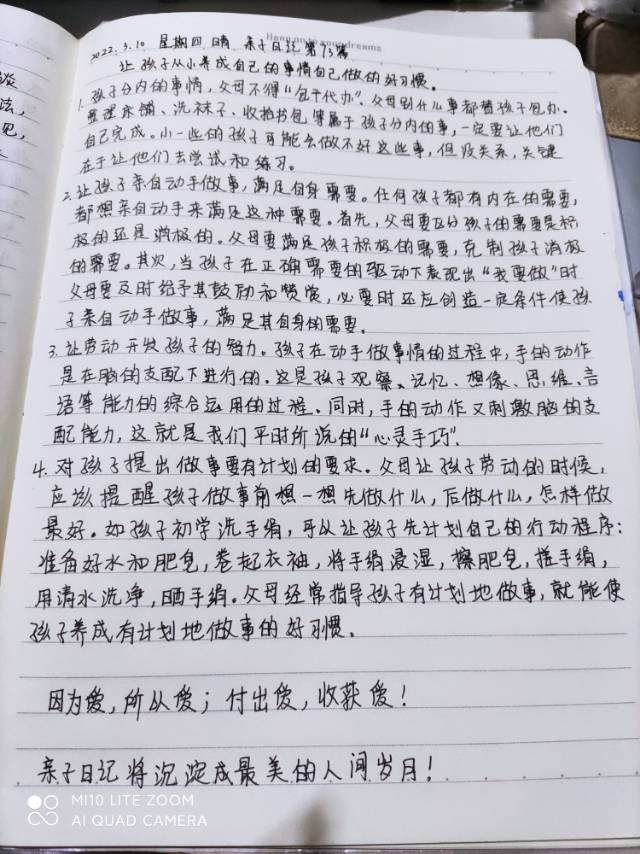 Hang on to your dreams
2022.3.10 星期四 晴 亲子日记第73篇
让孩子从小养成自己的事情自己做的好习惯。
1.孩子分内的事情,父母不得“包干代办”。父母别什么事都替孩子包办。
整理床铺、洗袜子、收拾书包等属于孩子分内的事,一定要让他们
自己完成。小一些的孩子可能会做不好这些事,但没关系,关键
在于让他们去尝试和练习。
2.让孩子亲自动手做事,满足自身需要。任何孩子都有内在的需要,
都想亲自动手来满足这种需要。首先,父母要区分孩子的需要是积
极的还是消极的。父母要满足孩子积极的需要,克制孩子消极
的需要。其次,当孩子在正确需要的驱动下表现出“我要做”时
父母要及时给予其鼓励和赞赏,必要时还应创造一定条件使孩
子亲自动手做事,满足其自身的需要。
3.让劳动开发孩子的智力。孩子在动手做事情的过程中,手的动作
是在脑的支配下进行的。这是孩子观察、记忆、想像、思维、言
语等能力的综合运用的过程。同时,手的动作又刺激脑的支
配能力,这就是我们平时所说的“心灵手巧”.
4.对孩子提出做事要有计划的要求。父母让孩子劳动的时候,
应该提醒孩子做事前想一想先做什么,后做什么,怎样做
最好。如孩子初学洗手绢,可以让孩子先计划自己的行动程序:
准备好水和肥皂,卷起衣袖,将手绢浸湿,擦肥皂,搓手绢,
用清水洗净,晒手绢。父母经常指导孩子有计划地做事,就能使
孩子养成有计划地做事的好习惯。
因为爱,所以爱;付出爱,收获爱!
亲子日记将沉淀成最美的人间岁月!
MI10 LITE ZOOM
AI QUAD CAMERA